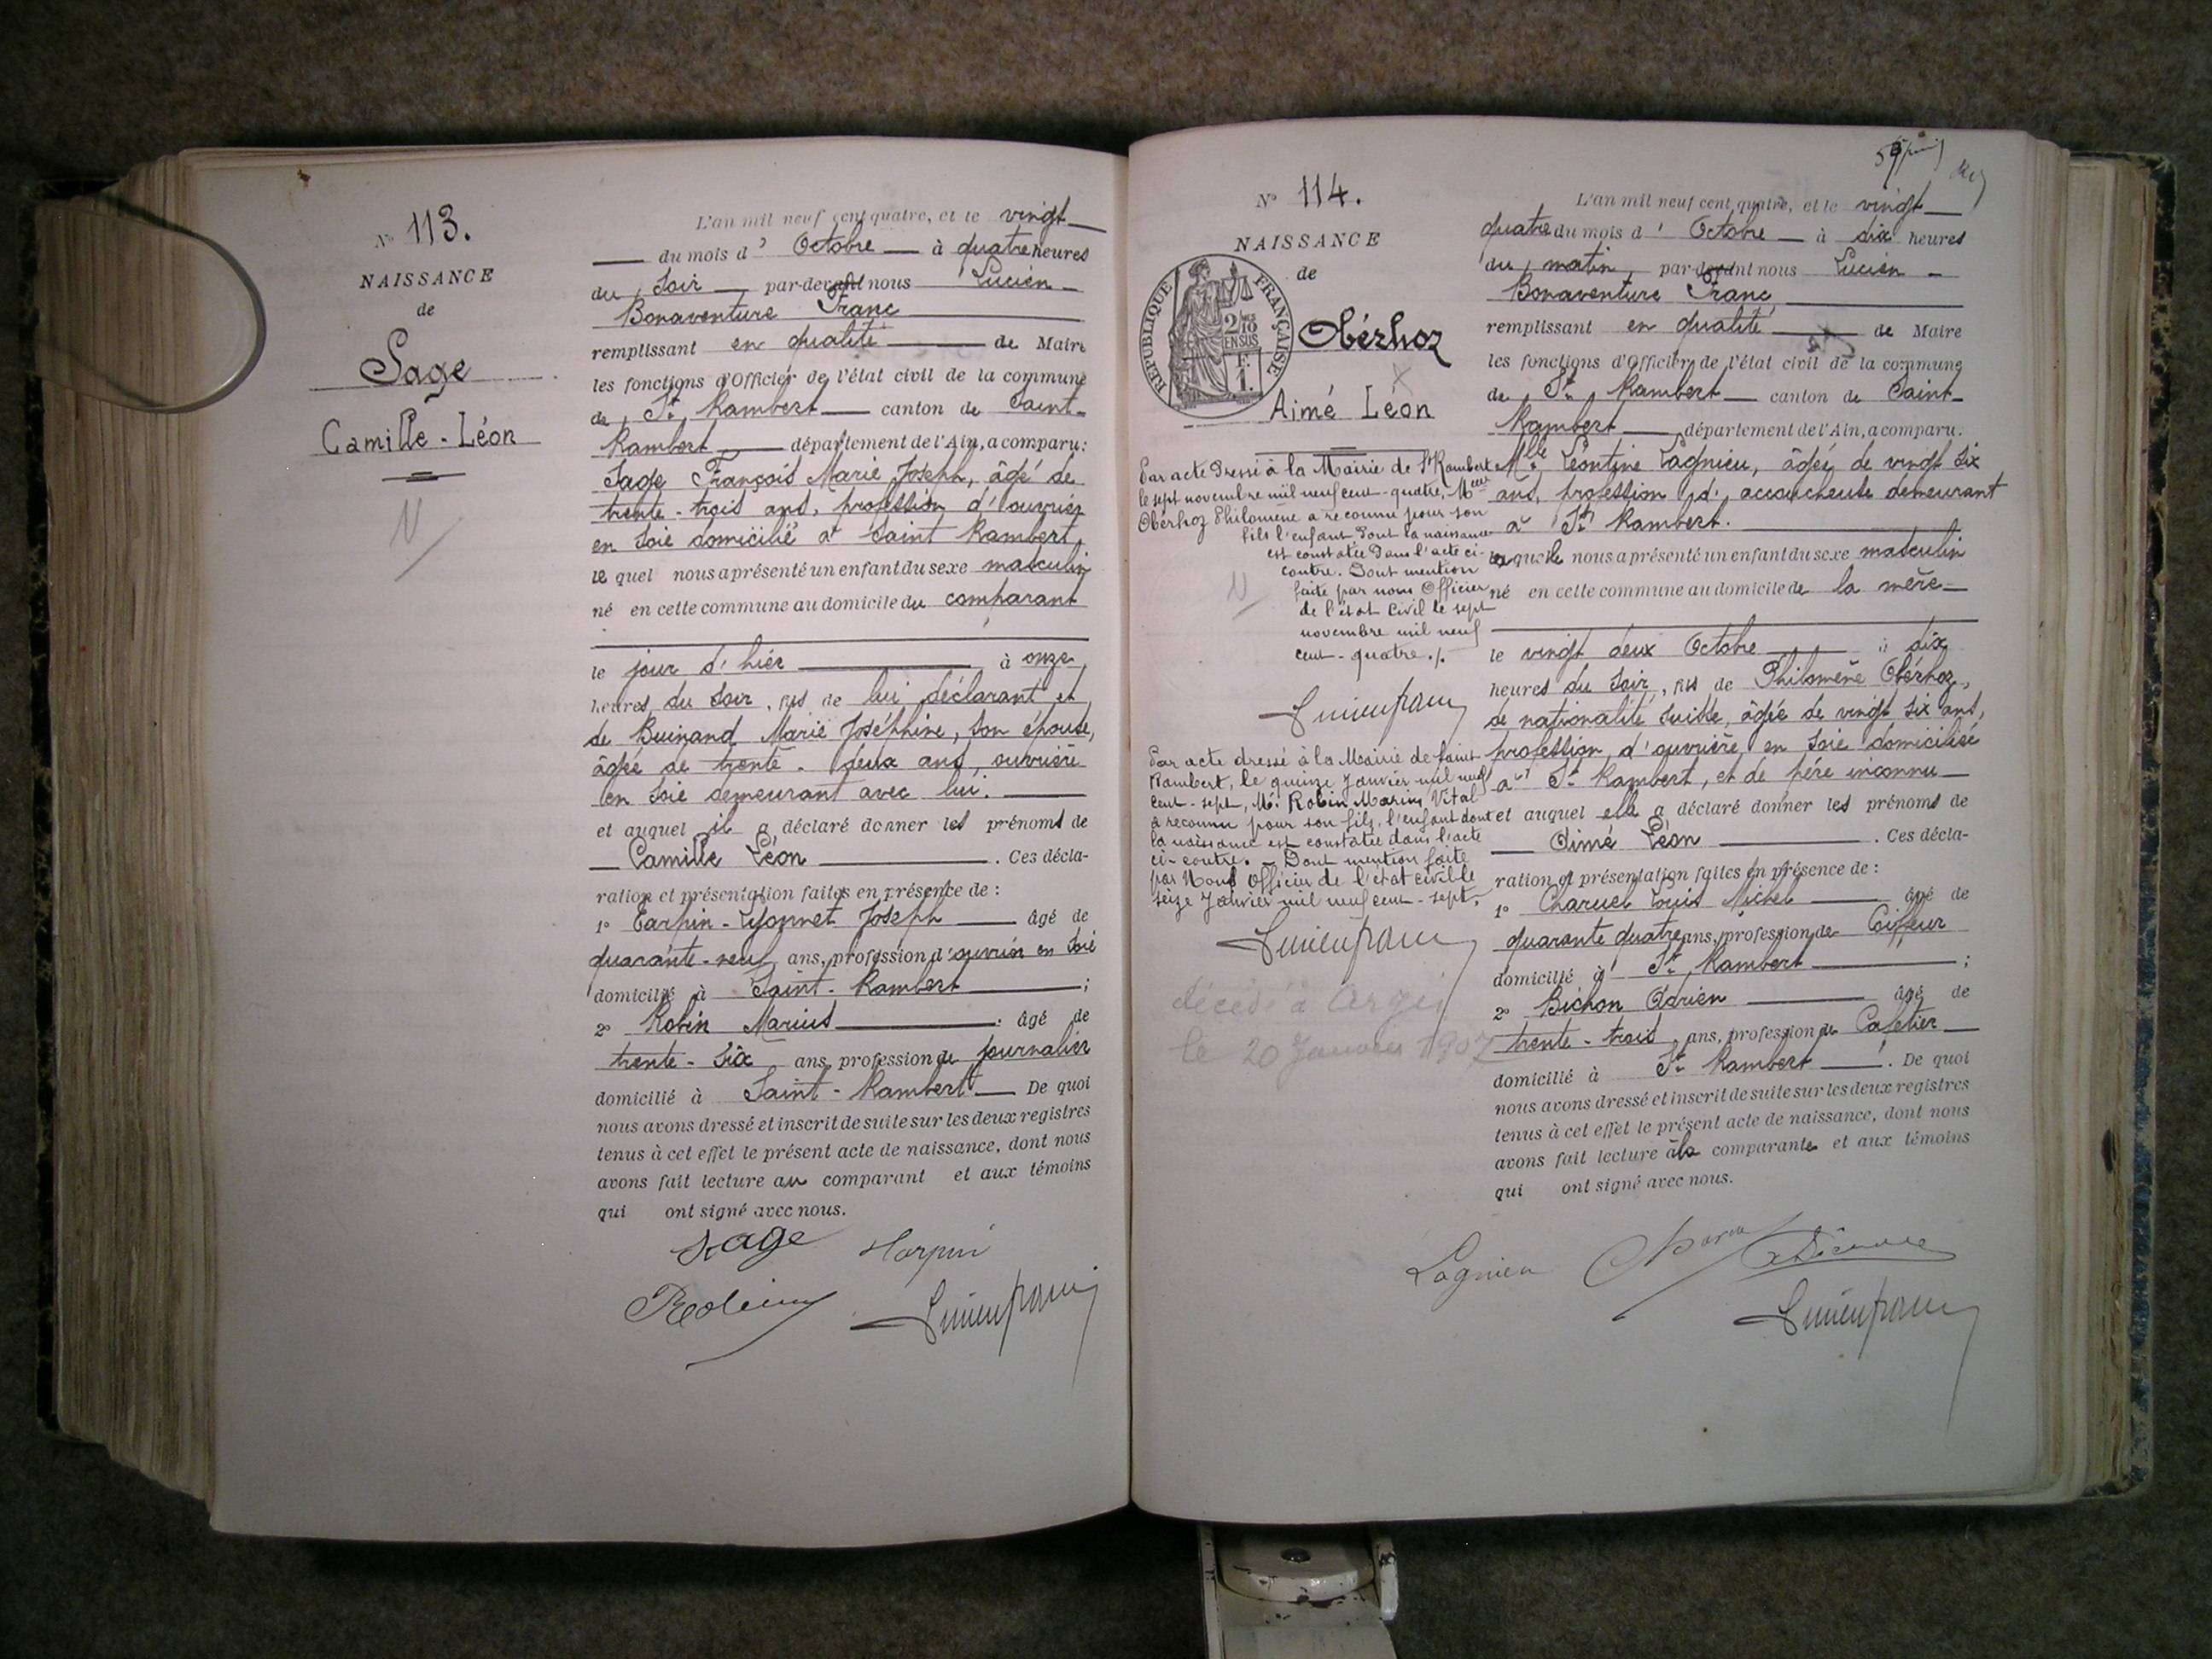 N° 113.
NAISSANCE
de
Sage
Camille - Léon
N
L'an mil neuf cent quatre, et le vingt
du mois d' Octobre à quatre heures
du soir par-devant nous Lucien
Bonaventure Franc
remplissant en qualité de Maire
les fonctions d'Officier de l'état civil de la commune
de St Rambert canton de Saint-
Rambert département de l'Ain, a comparu:
Sage François Marie Joseph, âgé de
trente-trois ans, profession d'ouvrier
en soie domicilié à Saint Rambert
lequel nous a présenté un enfant du sexe masculin
né en cette commune au domicile du comparant
le jour d'hier à onze
heures du soir, fils de lui déclarant et
de Buinand Marie Joséphine, son épouse,
âgée de trente-deux ans, ouvrière
en soie demeurant avec lui.
et auquel il a déclaré donner les prénoms de
Camille Léon. Ces décla-
ration et présentation faites en présence de :
1° Tarpin-Lyonnet Joseph âgé de
quarante-neuf ans, profession d'ouvrier en soie
domicilié à Saint-Rambert ;
2° Robin Marius âgé de
trente-six ans, profession de journalier
domicilié à Saint-Rambert De quoi
nous avons dressé et inscrit de suite sur les deux registres
tenus à cet effet le présent acte de naissance, dont nous
avons fait lecture au comparant et aux témoins
qui ont signé avec nous.
Sage Tarpin
Robin Lucien franc
N° 114.
NAISSANCE
de
RÉPUBLIQUE FRANÇAISE
2/10 EN SUS
F. 1.
Obérhoz
Aimé Léon
Par acte dressé à la Mairie de St Rambert
le sept novembre mil neuf cent-quatre, Melle
Obérhoz Philomène a reconnu pour son
fils l'enfant dont la naissance
est constatée dans l'acte ci-
contre. Dont mention
faite par nous Officier
de l'état civil le sept
novembre mil neuf
cent-quatre./.
Lucien franc
Par acte dressé à la Mairie de Saint
Rambert, le quinze Janvier mil neuf
cent-sept, Mr. Robin Marius Vital
a reconnu pour son fils, l'enfant dont
la naissance est constatée dans l'acte
ci-contre. - Dont mention faite
par Nous Officier de l'état civil le
seize Janvier mil neuf cent-sept.
Lucien franc
décédé à Argis
le 20 Janvier 1907
L'an mil neuf cent quatre, et le vingt
quatre du mois d' Octobre à dix heures
du matin, par-devant nous Lucien
Bonaventure Franc
remplissant en qualité de Maire
les fonctions d'Officier de l'état civil de la commune
de St Rambert canton de Saint-
Rambert département de l'Ain, a comparu:
Melle Léontine Lagnieu, âgée de vingt six
ans, profession d'accoucheuse demeurant
à St Rambert.
laquelle nous a présenté un enfant du sexe masculin
né en cette commune au domicile de la mère
le vingt deux Octobre à dix
heures du soir, fils de Philomène Obérhoz,
de nationalité suisse, âgée de vingt six ans,
profession d'ouvrière en soie domiciliée
à St Rambert, et de père inconnu
et auquel elle a déclaré donner les prénoms de
Aimé Léon. Ces décla-
ration et présentation faites en présence de :
1° Charuel Louis Michel âgé de
quarante quatre ans, profession de Coiffeur
domicilié à St Rambert ;
2° Bichon Adrien âgé de
trente-trois ans, profession de Cafetier
domicilié à St Rambert. De quoi
nous avons dressé et inscrit de suite sur les deux registres
tenus à cet effet le présent acte de naissance, dont nous
avons fait lecture à la comparante et aux témoins
qui ont signé avec nous.
Lagnieu
Lucien franc